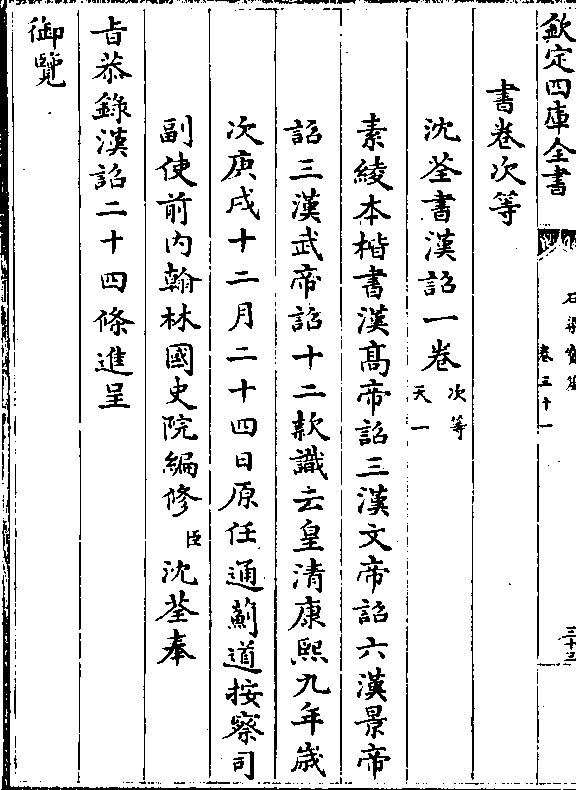 欽定四庫全書
石渠寶笈
卷三十一
三十三
書卷次等
沈荃書漢詔一卷 次等 天一
素綾本楷書漢高帝詔三漢文帝詔六漢景帝
詔三漢武帝詔十二款識云皇清康熙九年歳
次庚戌十二月二十四日原任通薊道按察司
副使前内翰林國史院編修臣沈荃奉
㫖恭錄漢詔二十四條進呈
御覽